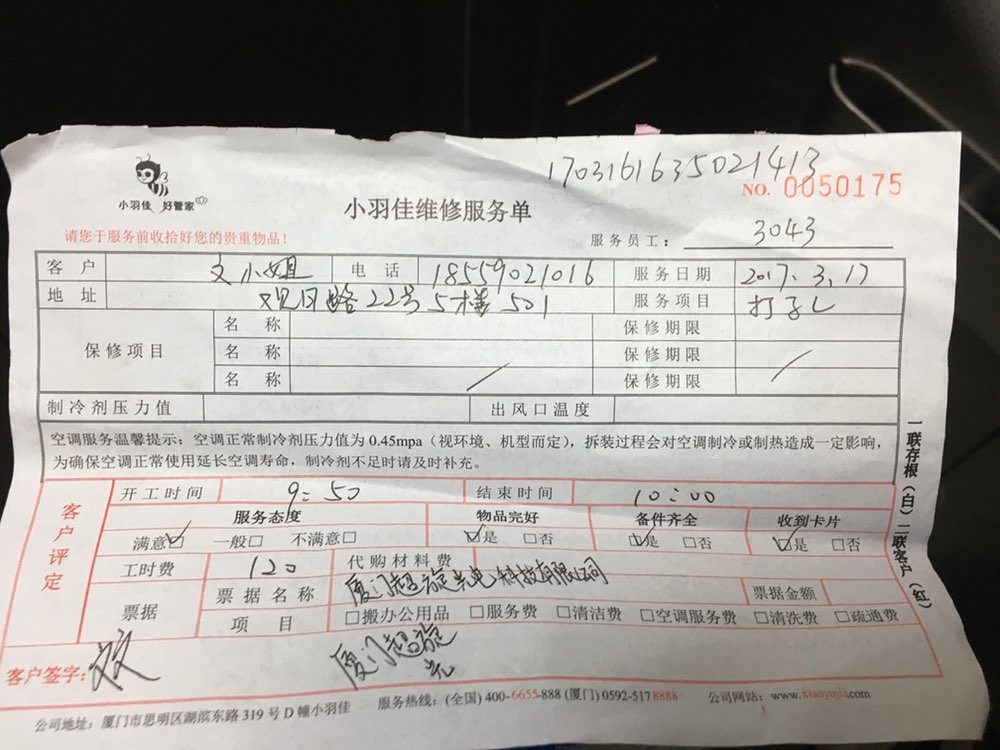 1703161635021413
小羽佳 好管家
NO. 0050175
小羽佳维修服务单
请您于服务前收拾好您的贵重物品！
服务员工： 3043
客户 文小姐 电话 18559021016 服务日期 2017.3.17
地址 观日路22号5楼501 服务项目 打孔
保修项目
名称 保修期限
名称 保修期限
名称 保修期限
制冷剂压力值 出风口温度
空调服务温馨提示：空调正常制冷剂压力值为 0.45mpa（视环境、机型而定），拆装过程会对空调制冷或制热造成一定影响，
为确保空调正常使用延长空调寿命，制冷剂不足时请及时补充。
一联存根（白）二联客户（红）
客户评定
开工时间 9：50 结束时间 10：00
服务态度 物品完好 备件齐全 收到卡片
满意☑ 一般□ 不满意□ ☑是 □否 ☑是 □否 ☑是 □否
工时费 120 代购材料费
票据 票据名称 厦门超旋光电科技有限公司 票据金额
项目 □搬办公用品 □服务费 □清洁费 □空调服务费 □清洗费 □疏通费
厦门超旋
光
客户签字：
公司地址：厦门市思明区湖滨东路 319 号 D 幢小羽佳 服务热线：(全国) 400-6655-888 (厦门) 0592-5178888 公司网站：www.xiaoyujia.com